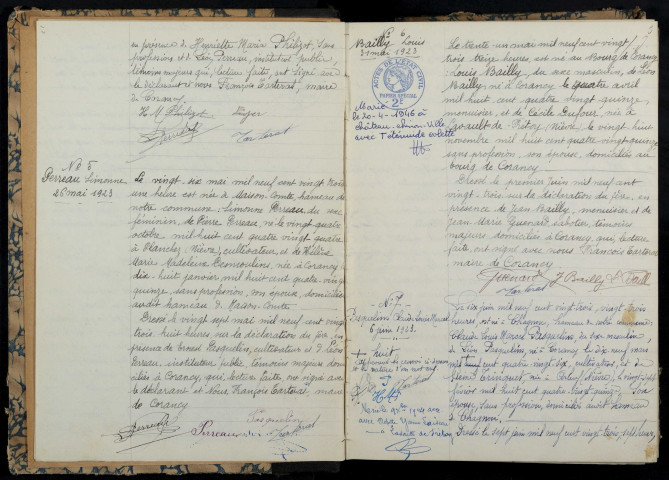 en présence de Henriette Maria Philizot, sans
profession, et de Léon Perreau, instituteur public,
témoins majeurs qui, lecture faite, ont signé avec
le déclarant et nous François Tartrat, maire
de Corancy.
H M Philizot
N° 5
Perreau Simonne
26 mai 1923
Le vingt-six mai mil neuf cent vingt trois
une heure est née à Maison-Comte, hameau de
notre commune : Simonne Perreau, du sexe
féminin, de Pierre Perreau, né le vingt quatre
octobre mil huit cent quatre vingt quatre
à Planchez (Nièvre), cultivateur, et de Hélène
Marie Madeleine, née à Corancy le
dix-huit janvier mil huit cent quatre-vingt
quinze sans profession, son épouse, domiciliés
audit hameau de Maison-Comte.
Dressé le vingt sept mai mil neuf cent vingt
trois huit heures, sur la déclaration du père, en
présence de Ernest Pasquelin, cultivateur et de Léon
Perreau, instituteur public témoins majeurs domi
ciliés à Corancy, qui, lecture faite, ont signé avec
le déclarant et Nous François Tartrat, maire
de Corancy
Pasquelin
Perreau
N° 6
Bailly Louis
31 mai 1923
ACTES DE L'ÉTAT CIVIL
PAPIER SPÉCIAL
2F
Marié
le 20-4-1946 à
Château-Chinon-Ville
avec
Le trente un mai mil neuf cent vingt
trois treize heures, est né au Bourg de Corancy
Louis Bailly, du sexe masculin, de Jean
Bailly, né à Corancy le quatre avril
mil huit cent quatre vingt quinze
menuisier, et de Cécile Dufour, née à
Lavault-de-Frétoy, Nièvre, le vingt huit
novembre mil huit cent quatre vingt quinze
sans profession, son épouse, domiciliés au
bourg de Corancy.
Dressé le premier Juin mil neuf cent
vingt-trois sur la déclaration du père, en
présence de Jean Bailly, menuisier et de
Jean Marie Guenard sabotier, témoins
majeurs domiciliés à Corancy, qui, lecture
faite, ont signé avec nous François Tartrat
maire de Corancy
Guenard J Bailly
N° 7
Pasquelin Claude Louis Marcel
6 juin 1923.
Le six juin mil neuf cent vingt trois, vingt trois
heures, est né à
Claude Louis Marcel Pasquelin, du sexe masculin,
de Léon Pasquelin, né à Corancy le dix neuf
mil cent quatre vingt dix, cultivateur, et de
février mil huit cent quatre vingt
épouse, sans profession, domiciliés audit hameau
Dressé le sept juin mil neuf cent vingt trois,